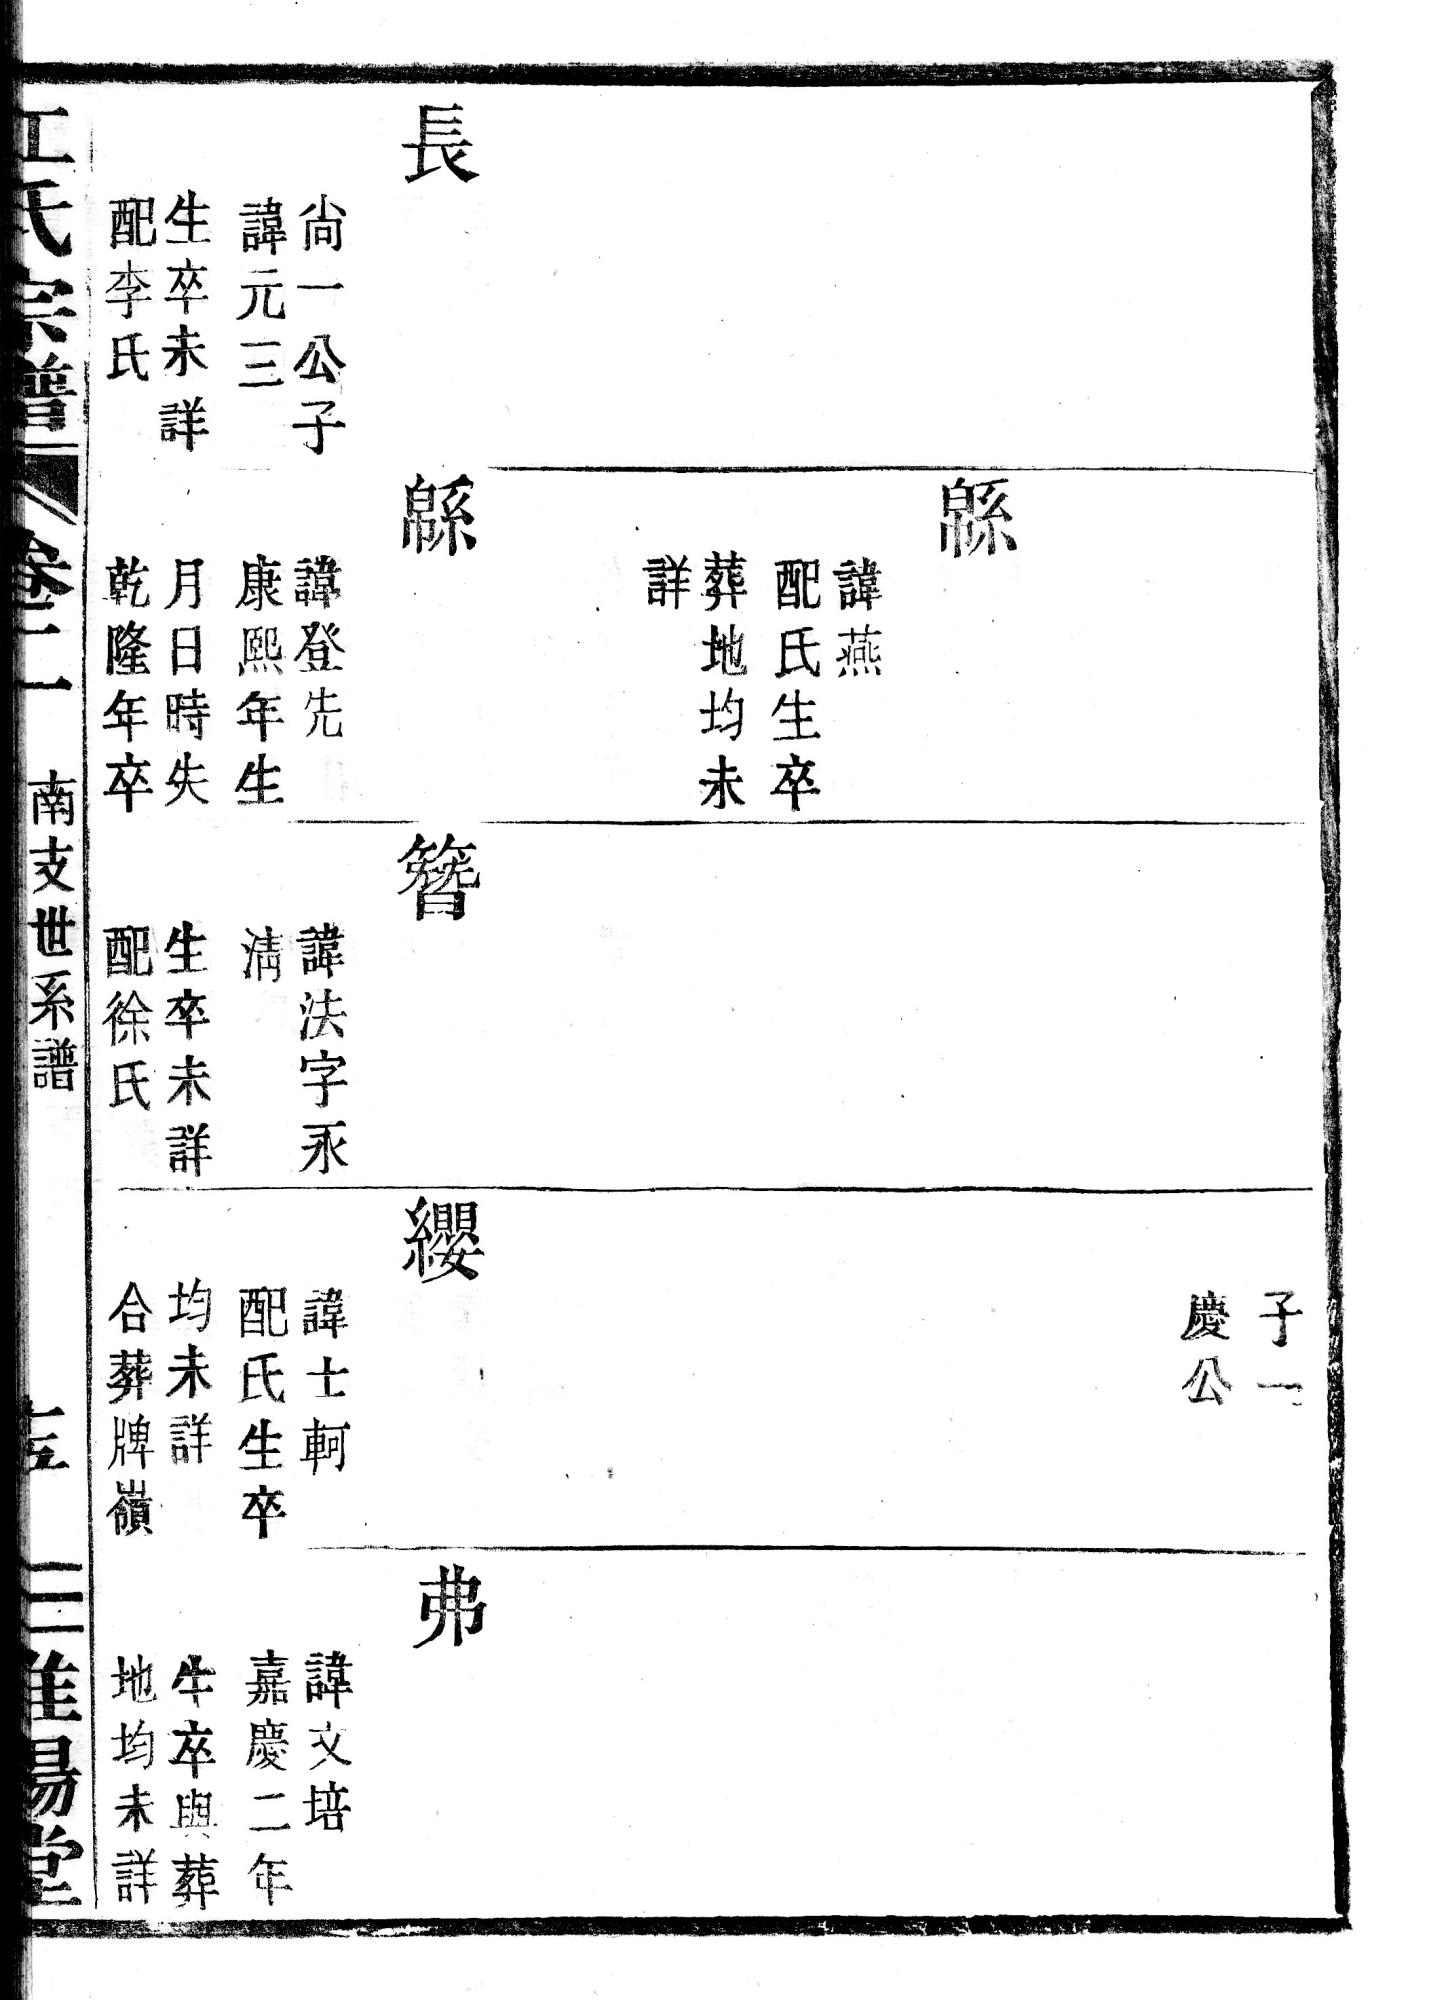 長
尙一公子
諱元三
生卒未詳
配李氏
緜
諱燕
配氏生卒
葬地均未
詳
緜
諱登先
康熙年生
月日時失
乾隆年卒
簪
諱法字永
淸
生卒未詳
配徐氏
子一
慶公
纓
諱士軻
配氏生卒
均未詳
合葬牌嶺
弗
諱文培
嘉慶二年
生卒與葬
地均未詳
江氏宗譜
卷二
南支世系譜
十五
淮陽堂